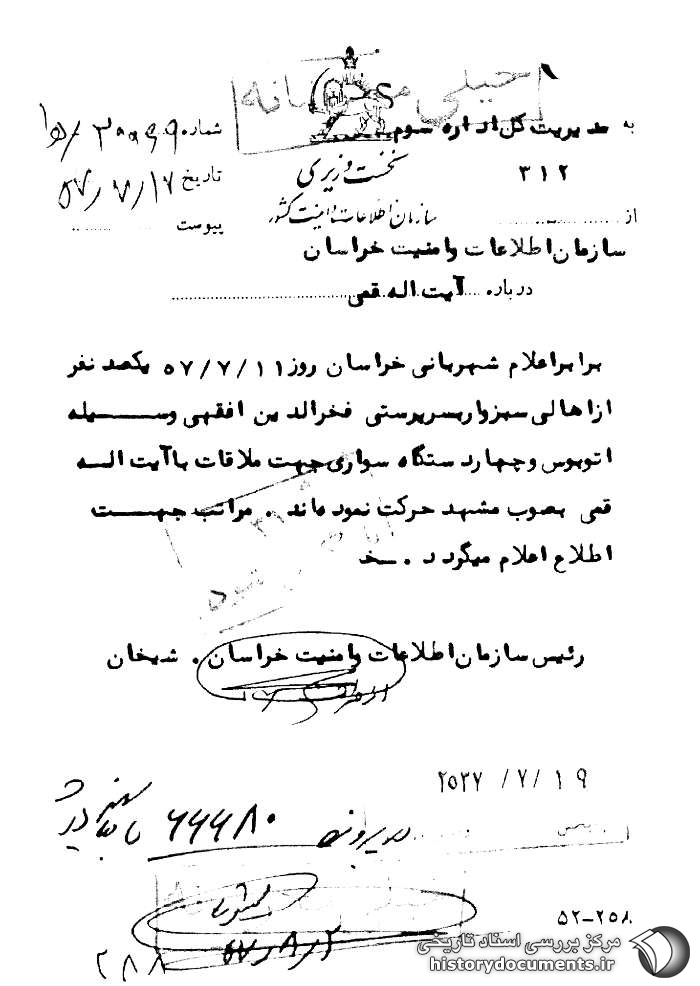 خیلی محرمانه
به مدیریت کل اداره سوم
۳۱۲
شماره
نخست وزیری
تاریخ ۵۷/۷/۱۷
سازمان اطلاعات و امنیت کشور
از
پیوست
سازمان اطلاعات وامنیت خراسان
درباره آیت اله قمی
برابراعلام شهربانی خراسان روز ۵۷/۷/۱۱ یکصد نفر
ازاهالی سبزواربسرپرستی فخرالدین افقهی وسیله
اتوبوس وچهاردستگاه سواری جهت ملاقات باآیت اله
قمی بصوب مشهد حرکت نموده اند . مراتب جهت
اطلاع اعلام میگردد . خ
رئیس سازمان اطلاعات وامنیت خراسان . شیخان
۲۵۳۷/۷/۱۹
۶۶۶۸۰
۵۷/۸/۲
۵۲-۲۵۸
۲۸۸
مرکز بررسی اسناد تاریخی
historydocuments.ir